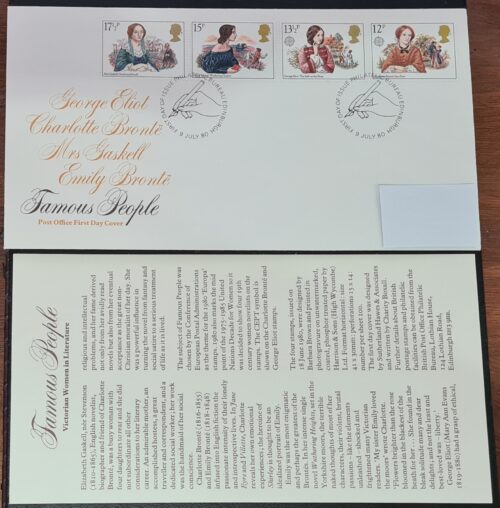 17½P
15P
13½P
12P
FIRST DAY OF ISSUE PHILATELIC BUREAU EDINBURGH
9 JULY 80
FIRST DAY OF ISSUE PHILATELIC BUREAU EDINBURGH
9 JULY 80
George Eliot
Charlotte Brontë
Mrs Gaskell
Emily Brontë
Famous People
Post Office First Day Cover
Famous People
Victorian Women in Literature
Elizabeth Gaskell, née Stevenson
(1810-1865), English novelist,
biographer and friend of Charlotte
Brontë, was a busy woman with
four daughters to rear and she did
not subordinate all other
considerations to her literary
career. An admirable mother, an
accomplished hostess, a great
traveller and correspondent, and a
dedicated social worker; her work
was the handmaid of her social
conscience.
Charlotte Brontë (1816-1855)
and Emily Brontë (1818-1848)
infused into English fiction the
passionate intensity of their lonely
and introspective lives. In Jane
Eyre and Villette, Charlotte
revealed her emotional
experiences; the heroine of
Shirley is thought to be an
idealized portrait of Emily.
Emily was the most enigmatic
and perhaps the greatest of the
Brontës. In her intense single
novel Wuthering Heights, set in the
Yorkshire moors, the terrible
naked thoughts of most of her
characters, their violent, brutal
passion – like the elements
unleashed – shocked and
frightened many Victorian
readers. 'My sister Emily loved
the moors' wrote Charlotte.
'Flowers brighter than the rose
bloomed in the blackest of the
heath for her ... She found in the
bleak solitude many and dear
delights, and not the least and
best-loved was – liberty'.
George Eliot (Mary Ann Evans
1819-1880) had a grasp of ethical,
religious and intellectual
problems, and her fame derived
not only from her avidly read
novels but also from her eventual
acceptance as the great non-
Christian moralist of her day. She
was a powerful influence in
turning the novel from fantasy and
romance to a serious treatment
of life as it is lived.
The subject of Famous People was
chosen by the Conference of
European Postal Administrations
as the theme for the 1980 'Europa'
stamps. 1980 also marks the mid
point of the 1975-1985 United
Nations Decade for Women so it
was decided to feature four 19th
century women novelists on the
stamps. The CEPT symbol is
shown on the Charlotte Brontë and
George Eliot stamps.
The four stamps, issued on
18 June 1980, were designed by
Barbara Brown and printed in
photogravure on unwatermarked,
coated, pre-gummed paper by
Harrison & Sons (High Wycombe)
Ltd. Format horizontal: size
41 × 30mm: perforations 15 × 14:
number per sheet 100.
The first day cover was designed
by Sedley Place Design
and written by
Further details about British
postage stamps and philatelic
facilities can be obtained from the
British Post Office Philatelic
Bureau, Lothian House,
124 Lothian Road,
Edinburgh EH3 9BB.